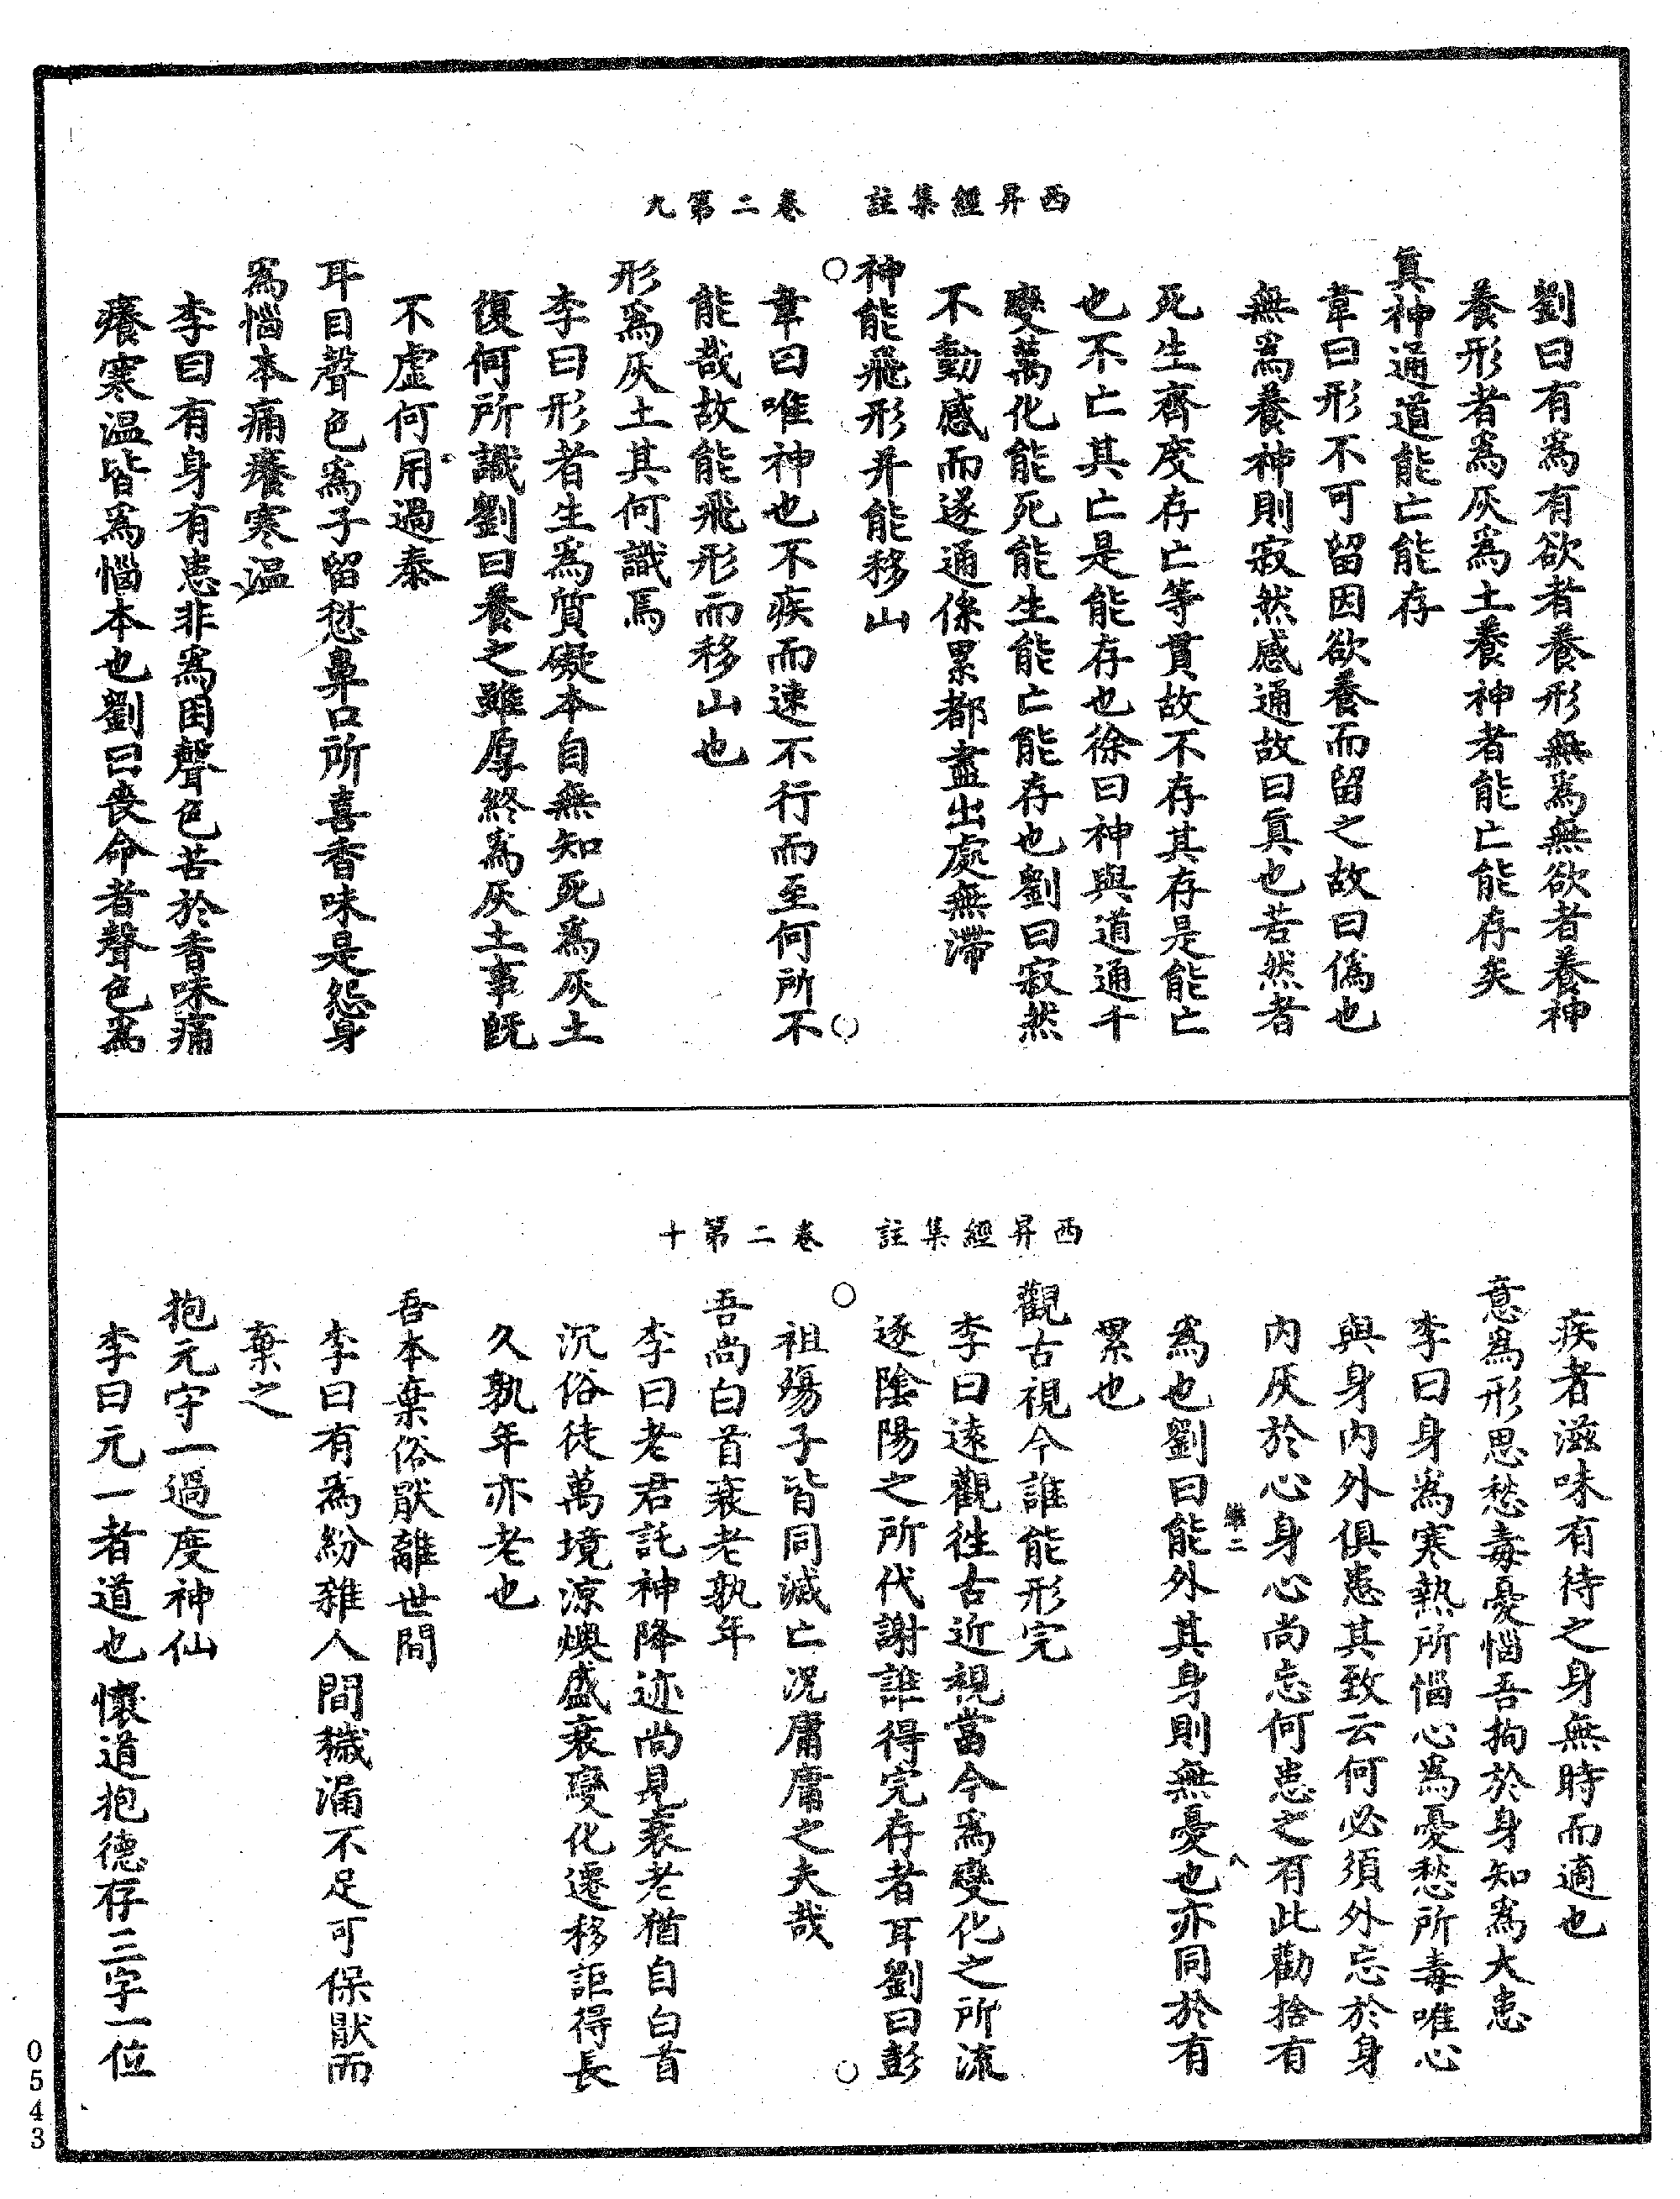 西昇經集註　卷二第九
劉曰有爲有欲者養形無爲無欲者養神
養形者爲灰爲土養神者能亡能存矣
真神通道能亡能存
韋曰形不可留因欲養而留之故曰僞也
無爲養神則寂然感通故曰真也若然者
死生齊度存亡等貫故不存其存是能亡
也不亡其亡是能存也徐曰神與道通千
變萬化能死能生能亡能存也劉曰寂然
不動感而遂通係累都盡出處無滯
神能飛形并能移山
韋曰唯神也不疾而速不行而至何所不
能哉故能飛形而移山也
形爲灰土其何識焉
李曰形者生爲質礙本自無知死爲灰土
復何所識劉曰養之雖厚終爲灰土事既
不虛何用過泰
耳目聲色爲子留愆鼻口所喜香味是怨身
爲惱本痛癢寒温
李曰有身有患非爲困聲色苦於香味痛
癢寒温皆爲惱本也劉曰喪命者聲色爲
西昇經集註　卷二第十
疾者滋味有待之身無時而適也
意爲形思愁毒憂惱吾拘於身知爲大患
李曰身爲寒熱所惱心爲憂愁所毒唯心
與身内外俱患其致云何必須外忘於身
内灰於心身心尚忘何患之有此勸捨有
維二　八
爲也劉曰能外其身則無憂也亦同於有
累也
觀古視今誰能形完
李曰遠觀徃古近視當今爲變化之所流
逐陰陽之所代謝誰得完存者耳劉曰彭
祖殤子皆同滅亡况庸庸之夫哉
吾尚白首衰老孰年
李曰老君託神降迹尚見衰老猶自白首
沉俗徒萬境涼燠盛衰變化遷移詎得長
久孰年亦老也
吾本棄俗猒離世間
李曰有爲紛雜人間穢漏不足可保猒而
棄之
抱元守一過度神仙
李曰元一者道也懷道抱德存三字一位
0543